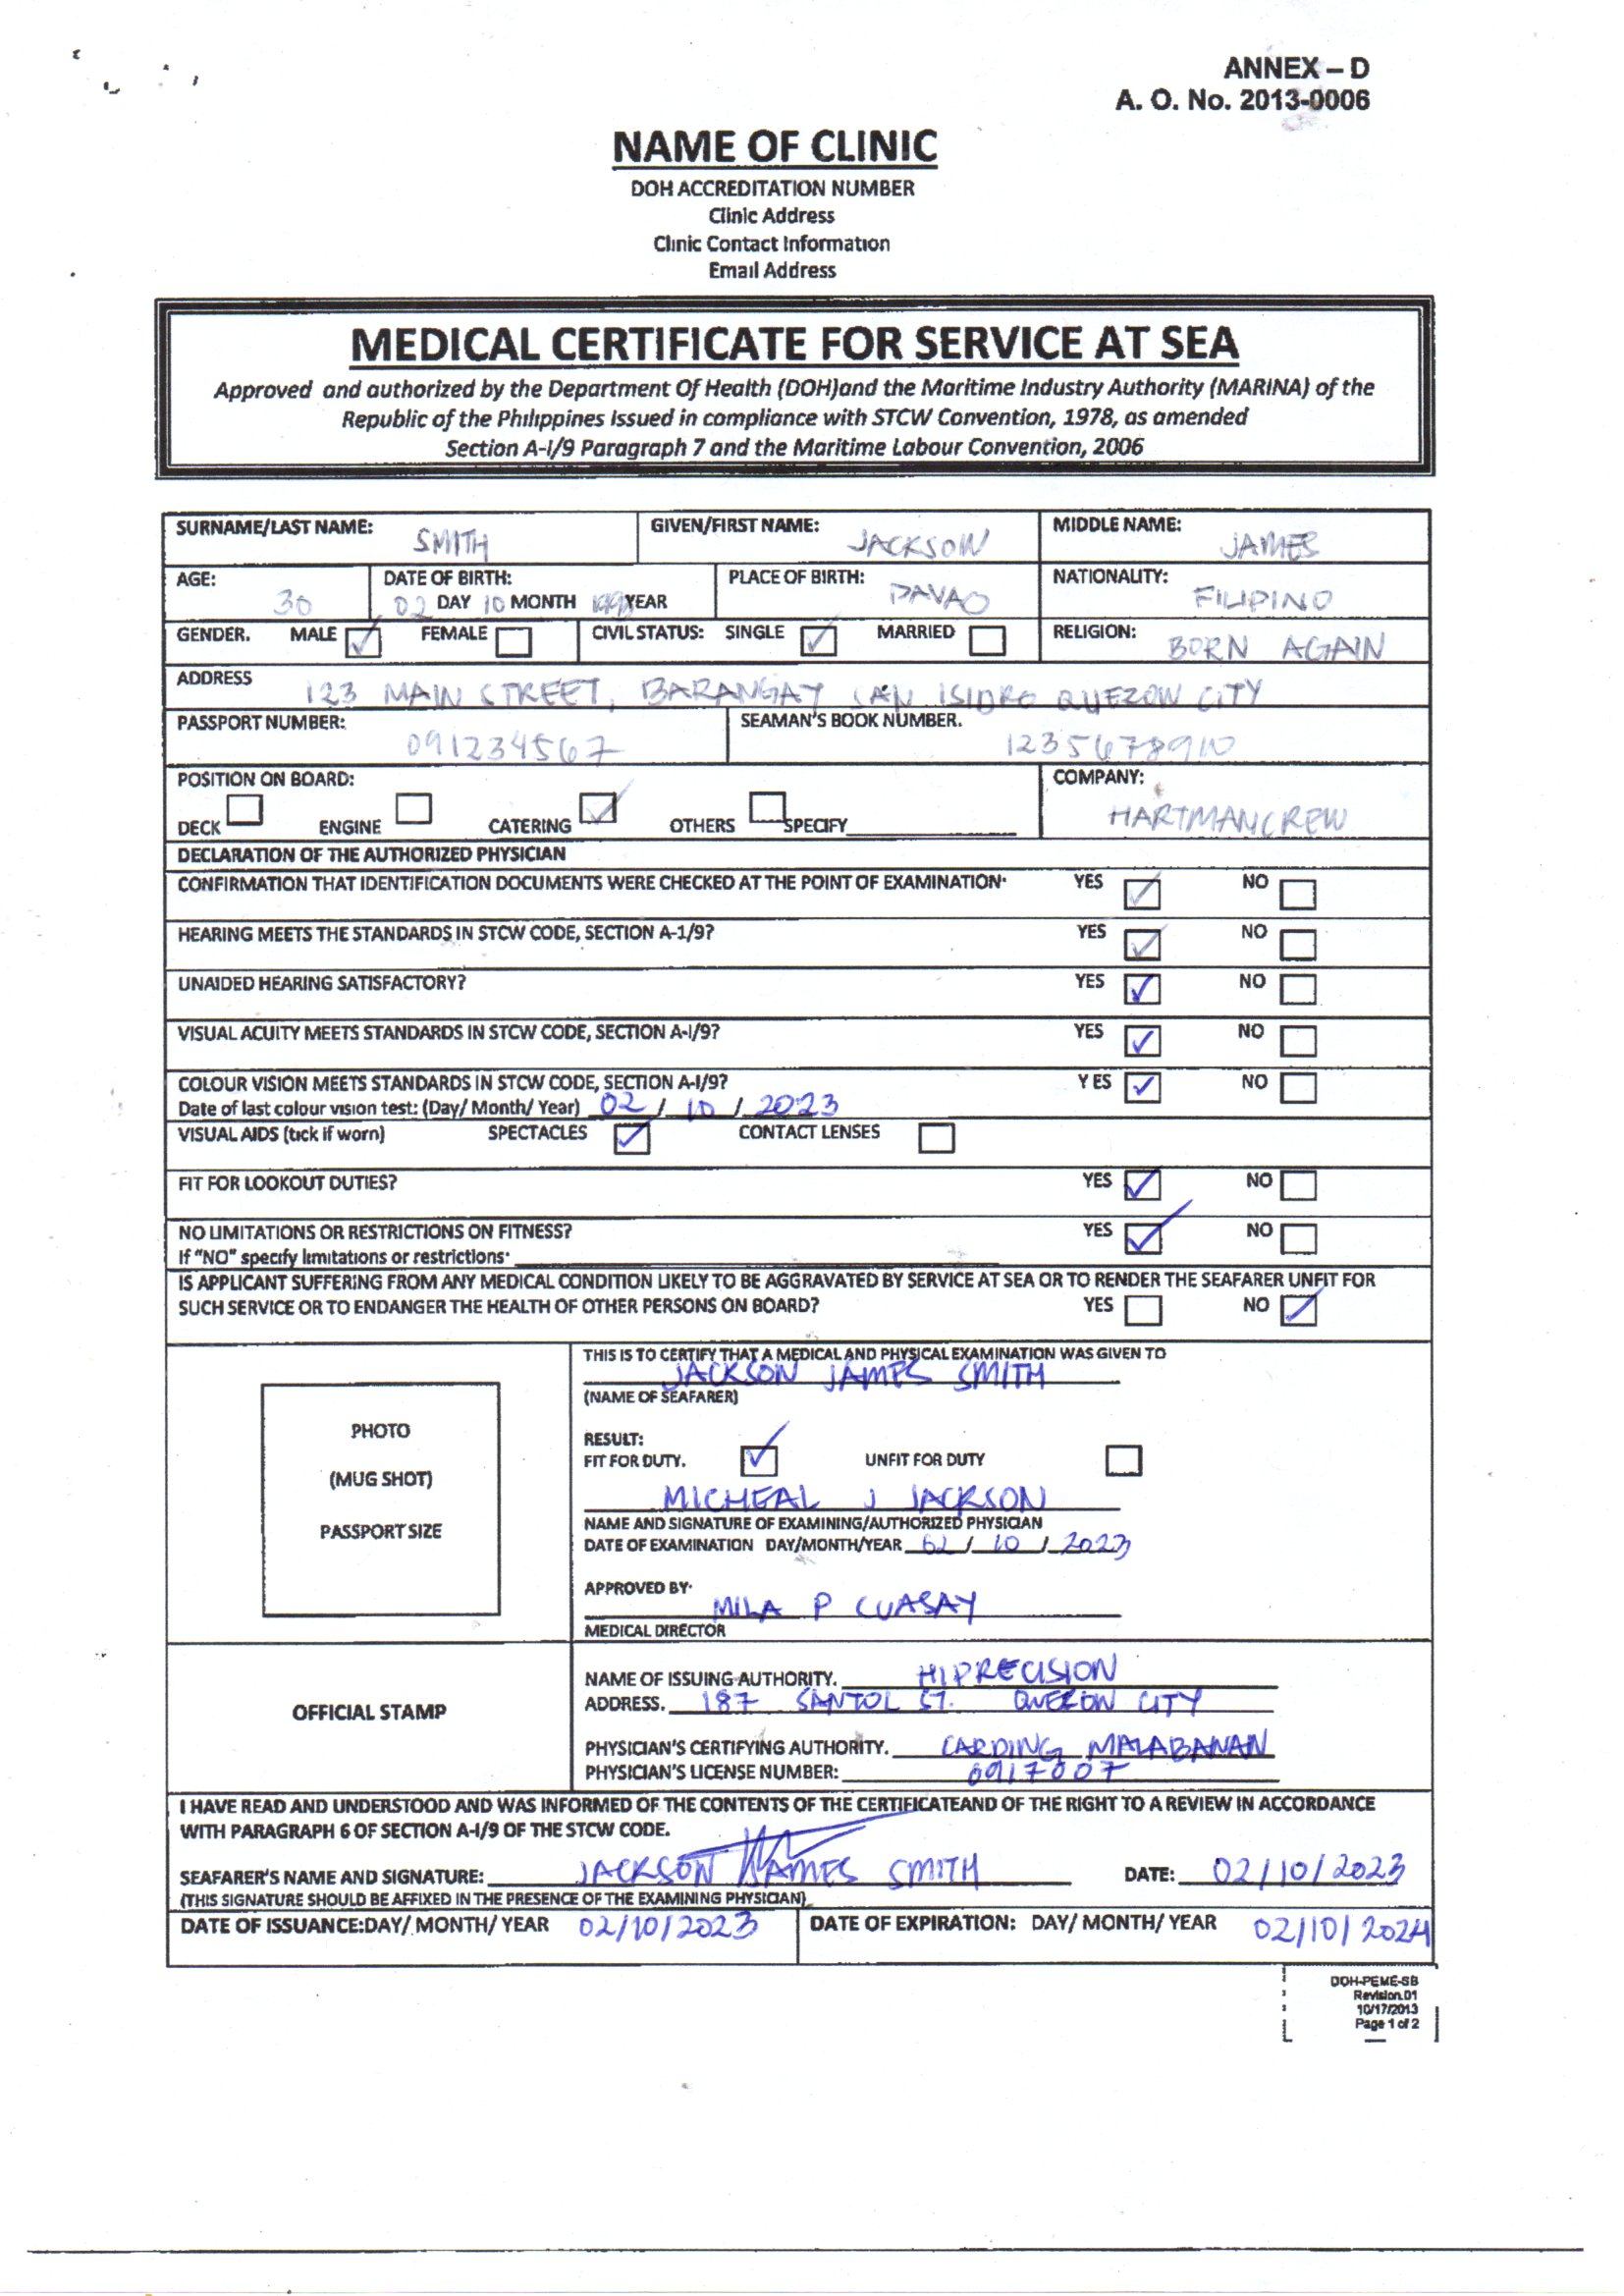 ANNEX – D
A. O. No. 2013-0006
NAME OF CLINIC
DOH ACCREDITATION NUMBER
Clinic Address
Clinic Contact Information
Email Address
MEDICAL CERTIFICATE FOR SERVICE AT SEA
Approved and authorized by the Department Of Health (DOH)and the Maritime Industry Authority (MARINA) of the
Republic of the Philippines Issued in compliance with STCW Convention, 1978, as amended
Section A-I/9 Paragraph 7 and the Maritime Labour Convention, 2006
SURNAME/LAST NAME: SMITH GIVEN/FIRST NAME: JACKSON MIDDLE NAME: JAMES
AGE: 30 DATE OF BIRTH: 02 DAY 10 MONTH YEAR PLACE OF BIRTH: DAVAO NATIONALITY: FILIPINO
GENDER. MALE FEMALE CIVIL STATUS: SINGLE MARRIED RELIGION: BORN AGAIN
ADDRESS 123 MAIN STREET, BARANGAY SAN ISIDRO QUEZON CITY
PASSPORT NUMBER: 091234567 SEAMAN'S BOOK NUMBER. 1235678910
POSITION ON BOARD: COMPANY: HARTMANCREW
DECK ENGINE CATERING OTHERS SPECIFY
DECLARATION OF THE AUTHORIZED PHYSICIAN
CONFIRMATION THAT IDENTIFICATION DOCUMENTS WERE CHECKED AT THE POINT OF EXAMINATION· YES NO
HEARING MEETS THE STANDARDS IN STCW CODE, SECTION A-1/9? YES NO
UNAIDED HEARING SATISFACTORY? YES NO
VISUAL ACUITY MEETS STANDARDS IN STCW CODE, SECTION A-I/9? YES NO
COLOUR VISION MEETS STANDARDS IN STCW CODE, SECTION A-I/9? YES NO
Date of last colour vision test: (Day/ Month/ Year) 02 / 10 / 2023
VISUAL AIDS (tick if worn) SPECTACLES CONTACT LENSES
FIT FOR LOOKOUT DUTIES? YES NO
NO LIMITATIONS OR RESTRICTIONS ON FITNESS? YES NO
If "NO" specify limitations or restrictions·
IS APPLICANT SUFFERING FROM ANY MEDICAL CONDITION LIKELY TO BE AGGRAVATED BY SERVICE AT SEA OR TO RENDER THE SEAFARER UNFIT FOR
SUCH SERVICE OR TO ENDANGER THE HEALTH OF OTHER PERSONS ON BOARD? YES NO
THIS IS TO CERTIFY THAT A MEDICAL AND PHYSICAL EXAMINATION WAS GIVEN TO
JACKSON JAMES SMITH
(NAME OF SEAFARER)
PHOTO
(MUG SHOT)
PASSPORT SIZE
RESULT:
FIT FOR DUTY. UNFIT FOR DUTY
MICHEAL J JACKSON
NAME AND SIGNATURE OF EXAMINING/AUTHORIZED PHYSICIAN
DATE OF EXAMINATION DAY/MONTH/YEAR 02 / 10 / 2023
APPROVED BY·
MILA P CUASAY
MEDICAL DIRECTOR
OFFICIAL STAMP
NAME OF ISSUING AUTHORITY. HIPRECISION
ADDRESS. 187 SANTOL ST. QUEZON CITY
PHYSICIAN'S CERTIFYING AUTHORITY. CARDING MALABANAN
PHYSICIAN'S LICENSE NUMBER: 0917007
I HAVE READ AND UNDERSTOOD AND WAS INFORMED OF THE CONTENTS OF THE CERTIFICATEAND OF THE RIGHT TO A REVIEW IN ACCORDANCE
WITH PARAGRAPH 6 OF SECTION A-I/9 OF THE STCW CODE.
SEAFARER'S NAME AND SIGNATURE: JACKSON JAMES SMITH DATE: 02/10/2023
(THIS SIGNATURE SHOULD BE AFFIXED IN THE PRESENCE OF THE EXAMINING PHYSICIAN)
DATE OF ISSUANCE:DAY/ MONTH/ YEAR 02/10/2023 DATE OF EXPIRATION: DAY/ MONTH/ YEAR 02/10/2024
DOH-PEME-SB
Revision.01
10/17/2013
Page 1 of 2